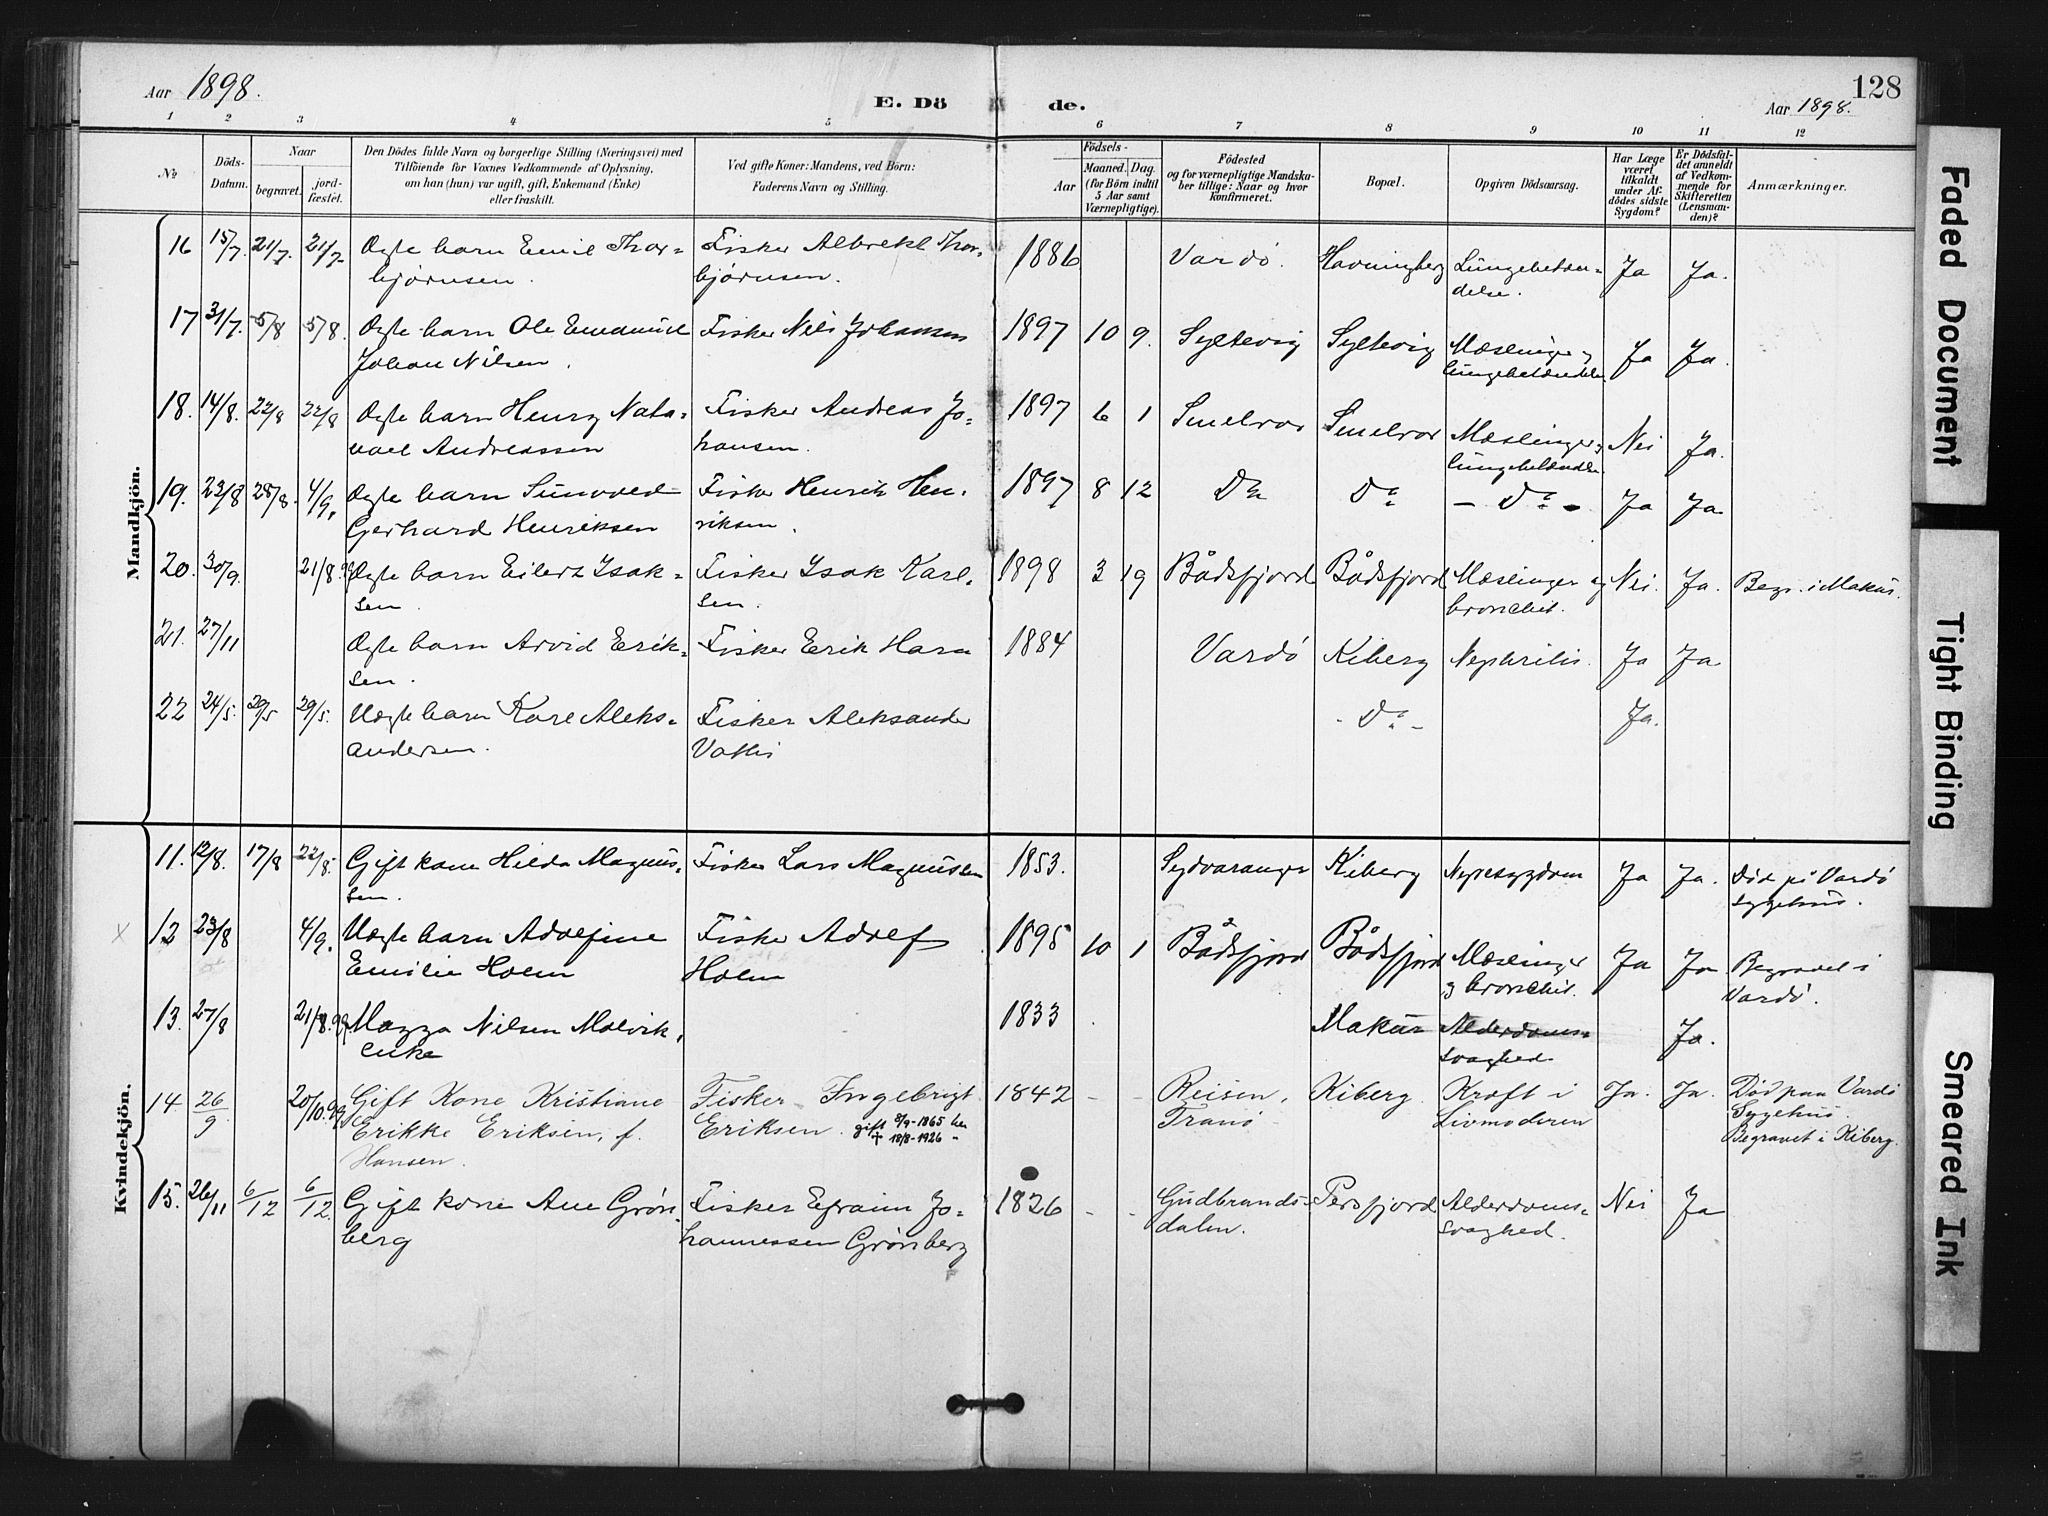 Aar 1898.
E. Dö
de.
Aar 1898.
128
1 2 3 4 5 6 7 8 9 10 11 12
No
Döds-
Datum.
Naar
begravet.
jord-
fæstet.
Den Dödes fulde Navn og borgerlige Stilling (Næringsvei) med
Tilföiende for Voxnes Vedkommende af Oplysning,
om han (hun) var ugift, gift, Enkemand (Enke)
eller fraskilt.
Ved gifte Koner: Mandens, ved Börn:
Faderens Navn og Stilling.
Födsels-
Aar
Maaned. Dag.
(for Börn indtil
5 Aar samt
Værnepligtige).
Födested
og for værnepligtige Mandska-
ber tillige: Naar og hvor
konfirmeret.
Bopæl.
Opgiven Dödsaarsag.
Har Læge
været
tilkaldt
under Af-
dödes sidste
Sygdom?
Er Dödsfal-
det anmeldt
af Vedkom-
mende for
Skifteretten
(Lensman-
den)?
Anmærkninger.
Mandkjön.
16 15/7 21/7 21/7 Ægte barn Emil Thor- Fisker Albrekt Thor- 1886 Vardö. Havningberg Lungebetæn- Ja Ja.
bjørnsen. bjørnsen. delse.
17 31/7. 5/8 5/8. Ægte barn Ole Emanuel Fisker Nils Johansen 1897 10 9. Syltevig Syltevig Mæslinger og Ja Ja.
Johan Nilsen. lungebetændelse
18. 14/8. 22/8 22/8 Ægte barn Henry Nata- Fisker Andreas Jo- 1897 6 1 Smelror Smelror Mæslinger og Nei Ja.
nael Andreassen hansen. lungebetændelse
19. 23/8 28/8. 4/9. Ægte barn Sunved Fisker Henrik Hen- 1897 8 12 Do Do - Do - Ja Ja
Gerhard Henriksen riksen.
20. 30/9. 21/8. 99 Ægte barn Eilert Isak- Fisker Isak Karl- 1898 3 19 Bådsfjord Bådsfjord Mæslinger og Nei. Ja. Begr. i Makur.
sen. sen. bronchit.
21. 27/11 Ægte barn Arvid Erik- Fisker Erik Hara 1884 Vardö Kiberg Nephritis. Ja Ja
sen.
22 24/5. 29/5 29/5. Uægte barn Karl Aleks- Fisker Aleksander - Do - Ja.
andersen. Vatti
Kvindekjön.
11. 12/8. 17/8 22/8. Gift kone Hilda Magnus- Fisker Lars Magnussen 1853. Sydvaranger Kiberg Nyresygdom Ja Ja. Död på Vardö
sen. sygehus.
x 12 23/8 4/9. Uægte barn Adolfine Fisker Adolf 1895 10 1 Bådsfjord Bådsfjord Mæslinger Ja Ja Begravet i
Emilie Holm Holm og bronchit. Vardö.
13. 27/8 21/8. 99 Mazza Nilsen Molvik, 1833 Makur Alderdoms- Ja.
enke svaghed
14 26/9 20/10. 99 Gift Kone Kristiane Fisker Ingebrigt 1842 - - Reisen, Kiberg Kræft i Ja. Ja. Död paa Vardö
Erikke Eriksen, f. Eriksen. gift 8/9-1865 han Tranö Livmoderen Sygehus.
Hansen. † 18/8-1926 Begravet i Kiberg.
15. 26/11 6/12 6/12. Gift kone Ane Grøn- Fisker Efraim Jo- 1826 - - Gudbrands- Persfjord Alderdoms- Nei Ja
berg hannessen Grønberg dalen. svaghed.
Faded Document
Tight Binding
Smeared Ink